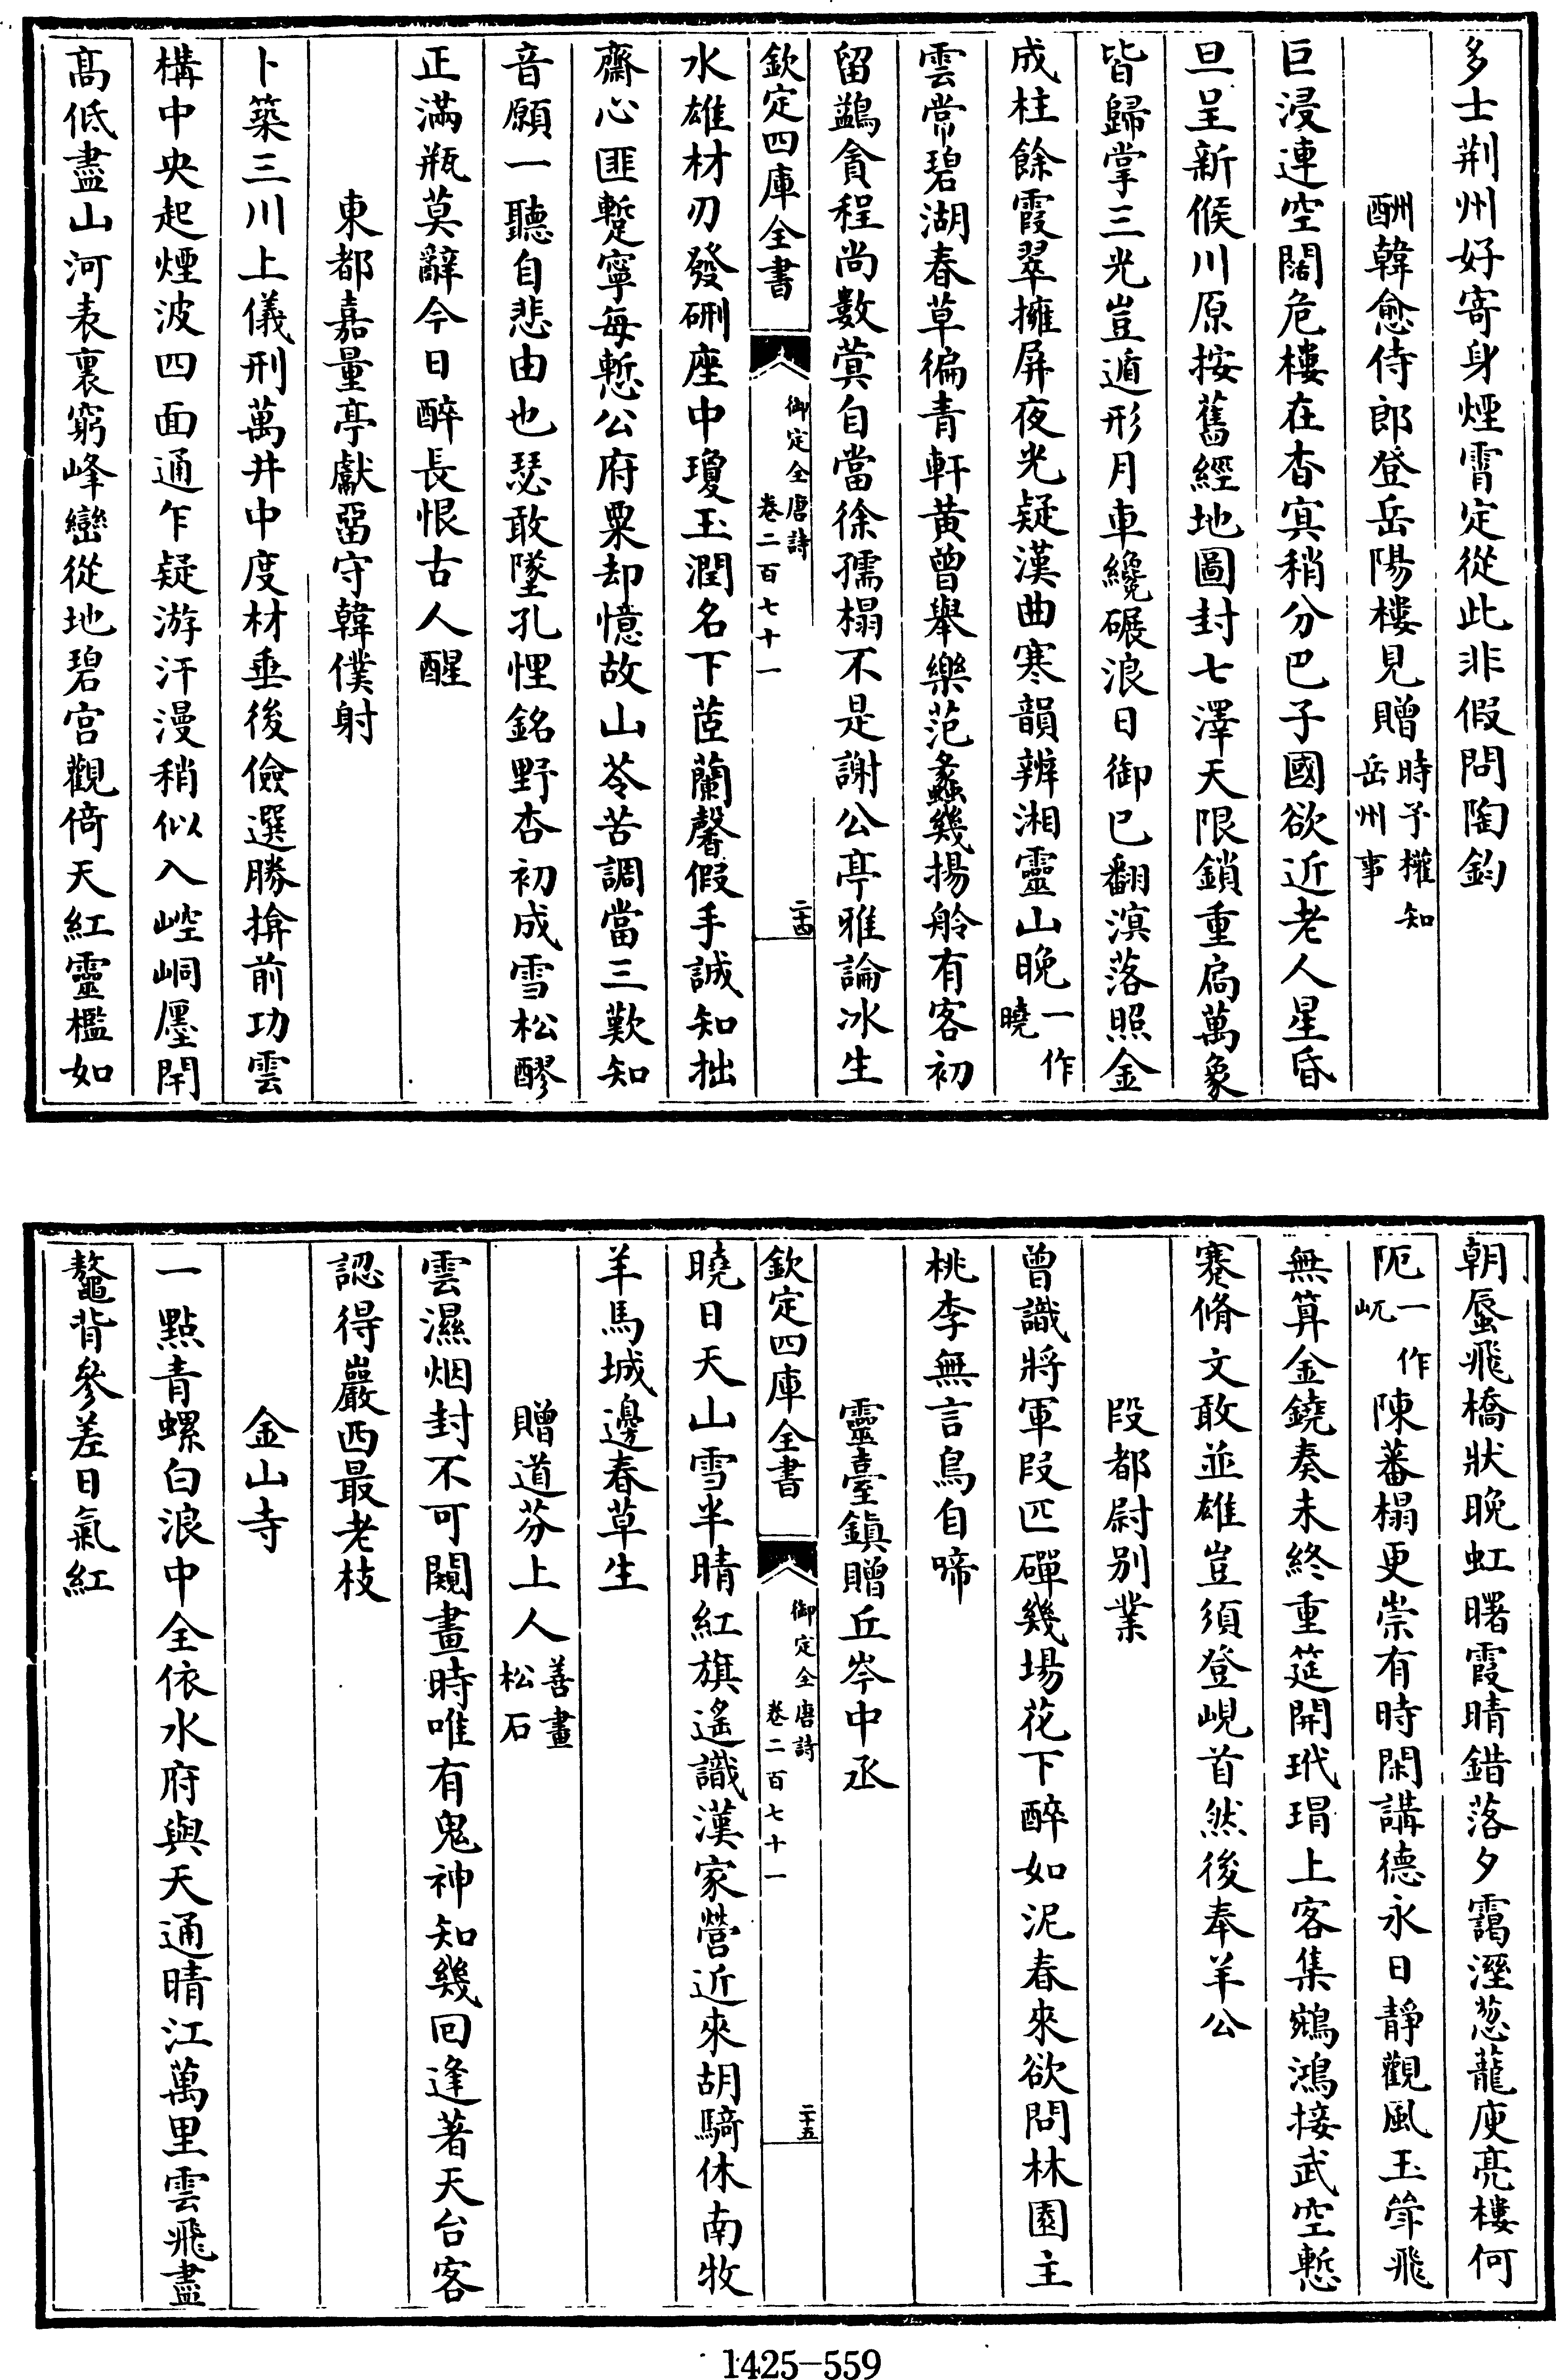 多士荆州好寄身煙霄定從此非假問陶鈞
酬韓愈侍郎登岳陽樓見贈時予權知岳州事
巨浸連空闊危樓在杳㝠稍分巴子國欲近老人星昏
旦呈新候川原按舊經地圖封七澤天限鎖重扃萬象
皆歸掌三光豈遁形月車纔碾浪日御已翻溟落照金
成柱餘霞翠擁屏夜光疑漢曲寒韻辨湘靈山晚一作曉
雲常碧湖春草徧青軒黃曾舉樂范蠡幾揚舲有客初
留鷁貪程尚數蓂自當徐孺榻不是謝公亭雅論冰生
欽定四庫全書
御定全唐詩
卷二百七十一
二十四
水雄材刃發硎座中瓊玉潤名下茝蘭馨假手誠知拙
齋心匪蹔寧每慙公府粟却憶故山苓苦調當三歎知
音願一聽自悲由也瑟敢墜孔悝銘野杏初成雪松醪
正滿瓶莫辭今日醉長恨古人醒
東都嘉量亭獻留守韓僕射
卜築三川上儀刑萬井中度材垂後儉選勝揜前功雲
構中央起煙波四面通乍疑游汗漫稍似入崆峒廛閈
髙低盡山河表裏窮峰巒從地碧宫觀倚天紅靈檻如
朝蜃飛橋狀晚虹曙霞晴錯落夕靄溼葱蘢庾亮樓何
阨一作屼陳蕃榻更崇有時閑講德永日靜觀風玉斝飛
無算金鐃奏未終重筵開玳瑁上客集鵷鴻接武空慙
蹇脩文敢並雄豈須登峴首然後奉羊公
段都尉别業
曾識將軍段匹磾幾場花下醉如泥春來欲問林園主
桃李無言鳥自啼
靈臺鎮贈丘岑中丞
欽定四庫全書
御定全唐詩
卷二百七十一
二十五
曉日天山雪半晴紅旗遙識漢家營近來胡騎休南牧
羊馬城邊春草生
贈道芬上人善畫松石
雲濕烟封不可闚畫時唯有鬼神知幾回逢著天台客
認得巖西最老枝
金山寺
一點青螺白浪中全依水府與天通晴江萬里雲飛盡
鼇背參差日氣紅
1425-559